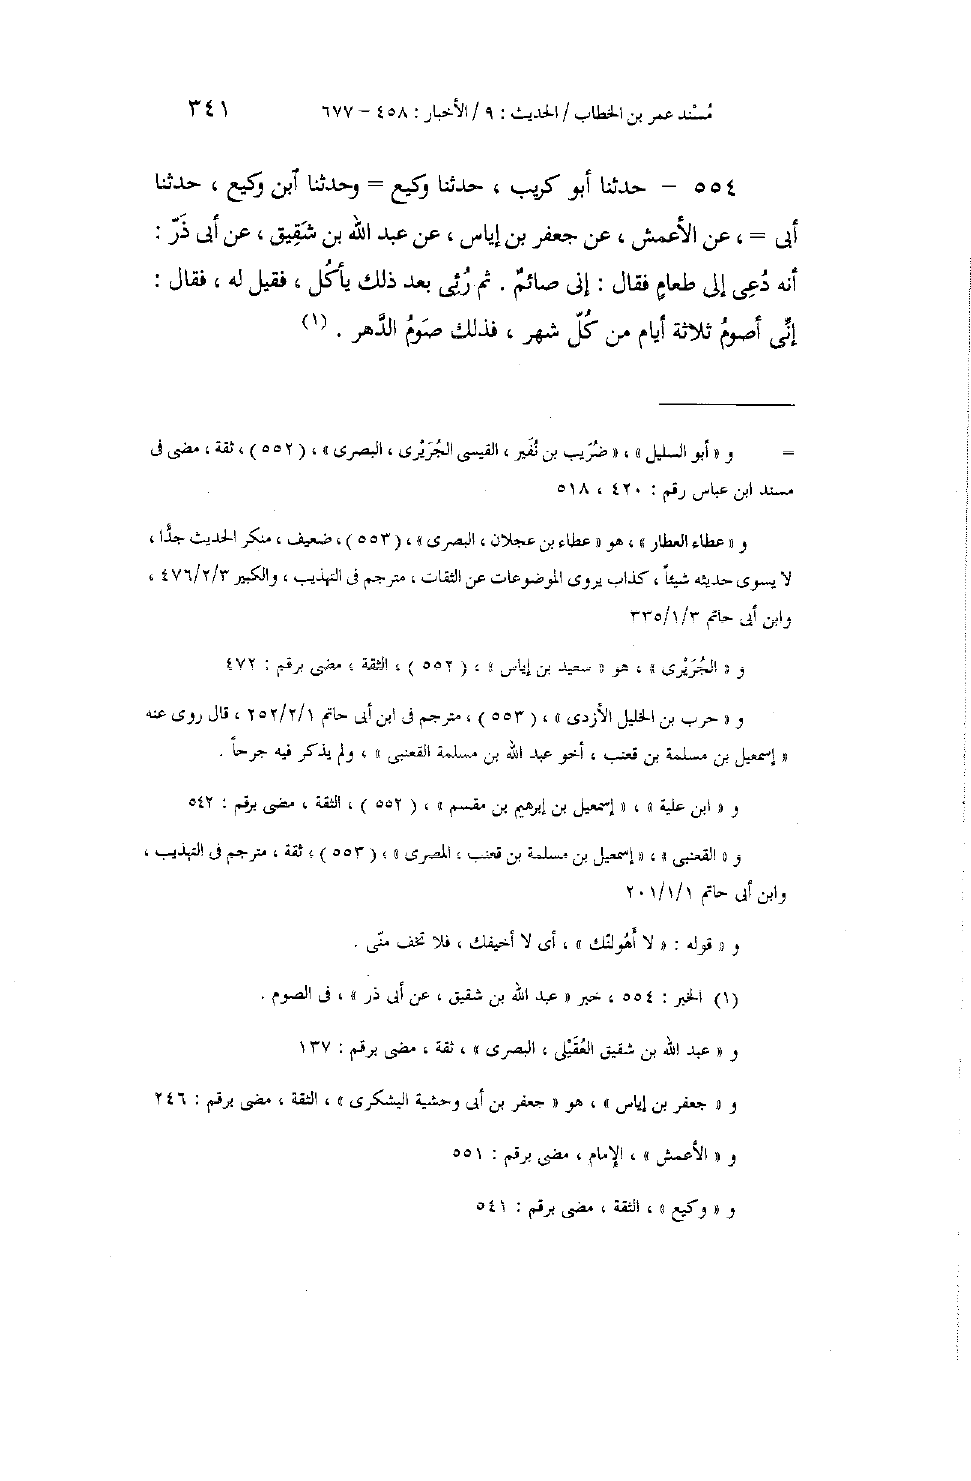 مُسْند عمر بن الخطاب / الحديث : ٩ / الأخبار : ٤٥٨ – ٦٧٧ ٣٤١
٥٥٤ – حدثنا أبو كريب ، حدثنا وكيع = وحدثنا آبن وكيع ، حدثنا
أبى = ، عن الأعمش ، عن جعفر بن إياس ، عن عبد الله بن شَقِيق ، عن أبى ذَرّ :
أنه دُعِى إلى طعامٍ فقال : إنى صائمٌ . ثم رُئِى بعد ذلك يأكُل ، فقيل له ، فقال :
إنِّى أصومُ ثلاثة أيام من كُلّ شهر ، فذلك صَومُ الدَّهر . (١)
= و « أبو السليل » ، « ضُرَيب بن نُفَير ، القيسى الجُرَيْرى ، البصرى » ، ( ٥٥٢ ) ، ثقة ، مضى فى
مسند ابن عباس رقم : ٤٢٠ ، ٥١٨
و « عطاء العطار » ، هو « عطاء بن عجلان ، البصرى » ، ( ٥٥٣ ) ، ضعيف ، منكر الحديث جدًّا ،
لا يسوى حديثه شيئاً ، كذاب يروى الموضوعات عن الثقات ، مترجم فى التهذيب ، والكبير ٤٧٦/٢/٣ ،
وابن أبى حاتم ٣٣٥/١/٣
و « الجُرَيْرى » ، هو « سعيد بن إياس » ، ( ٥٥٢ ) ، الثقة ، مضى برقم : ٤٧٢
و « حرب بن الخليل الأزدى » ، ( ٥٥٣ ) ، مترجم فى ابن أبى حاتم ٢٥٢/٢/١ ، قال روى عنه
« إسمعيل بن مسلمة بن قعنب ، أخو عبد الله بن مسلمة القعنبى » ، ولم يذكر فيه جرحاً .
و « ابن علية » ، « إسمعيل بن إبرهيم بن مقسم » ، ( ٥٥٢ ) ، الثقة ، مضى برقم : ٥٤٢
و « القعنبى » ، « إسمعيل بن مسلمة بن قعنب ، المصرى » ، ( ٥٥٣ ) ، ثقة ، مترجم فى التهذيب ،
وابن أبى حاتم ٢٠١/١/١
و « قوله : « لا أَهُولنّك » ، أى لا أخيفك ، فلا تخف منّى .
(١) الخبر : ٥٥٤ ، خبر « عبد الله بن شقيق ، عن أبى ذر » ، فى الصوم .
و « عبد الله بن شقيق العُقَيْلى ، البصرى » ، ثقة ، مضى برقم : ١٣٧
و « جعفر بن إياس » ، هو « جعفر بن أبى وحشية اليشكرى » ، الثقة ، مضى برقم : ٢٤٦
و « الأعمش » ، الإمام ، مضى برقم : ٥٥١
و « وكيع » ، الثقة ، مضى برقم : ٥٤١